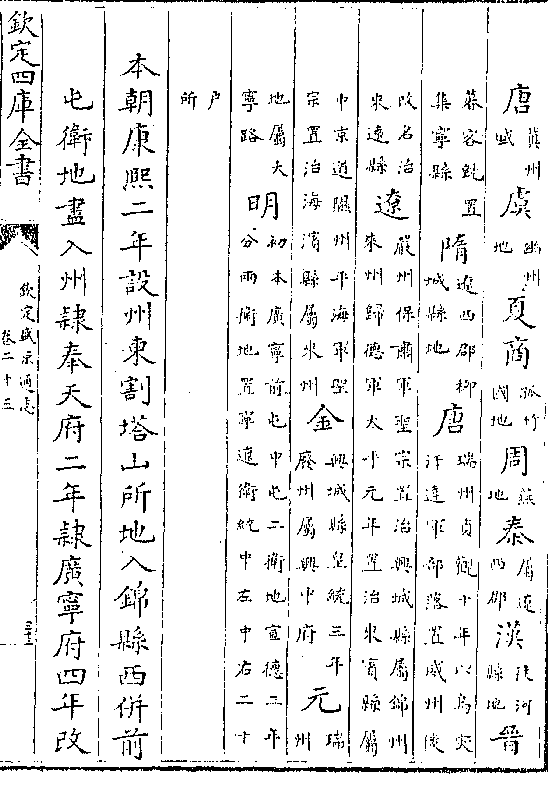 唐冀州域虞幽州地夏商孤竹國地周燕地秦屬遼西郡漢徒河縣地晉
慕容皝置集寧縣隋遼西郡柳城縣地唐瑞州貞觀十年以烏突汗達軍部落置威州後
改名治來遠縣遼嚴州保肅軍聖宗置治興城縣屬錦州來州歸德軍太平元年置治來賓縣屬
中京道隰州平海軍聖宗置治海濱縣屬來州金興城縣皇統三年廢州屬興中府元瑞州
地屬大寧路明初本廣寧前屯中屯二衛地宣德三年分兩衛地置寧遠衛統中左中右二千
戶所
本朝康熙二年設州東割塔山所地入錦縣西併前
屯衛地盡入州隸奉天府二年隸廣寧府四年改
欽定四庫全書
欽定盛京通志
卷二十三